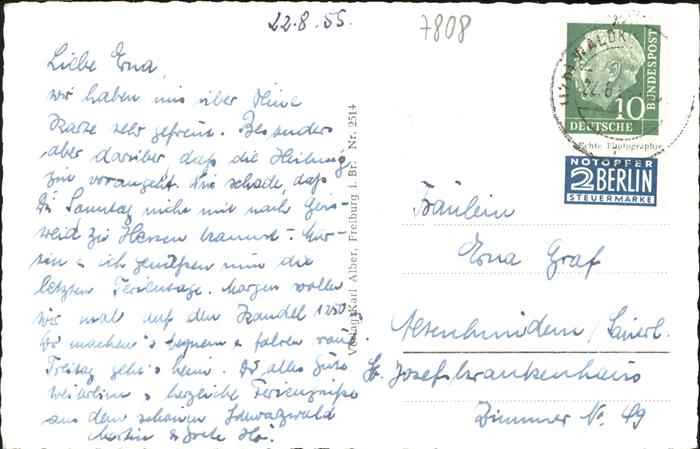 22.8.55.
7808
Liebe Erna,
wir haben uns über Deine
Karte sehr gefreut. Besonders
aber darüber, daß die Heilung
gut vorangeht. Wie schade, daß
Du Sonntag nicht mit nach Geis-
weid zu Herzen kannst - Mar-
tin & ich genießen nun die
letzten Ferientage. Morgen wollen
wir mal auf den Kandel 1250
Wir machen's bequem & fahren rauf.
Freitag geht's heim. Dir alles Gute
weiterhin & herzliche Feriengrüße
aus dem schönen Schwarzwald
Martin & Grete
Verlag Karl Alber, Freiburg i. Br. Nr. 2514
WALDK
22.8
10
DEUTSCHE
BUNDESPOST
Echte Photographie
NOTOPFER
2 BERLIN
STEUERMARKE
Fräulein
Erna Graf
Altenhundem / Sauerl.
St. Josefskrankenhaus
Zimmer No. 49